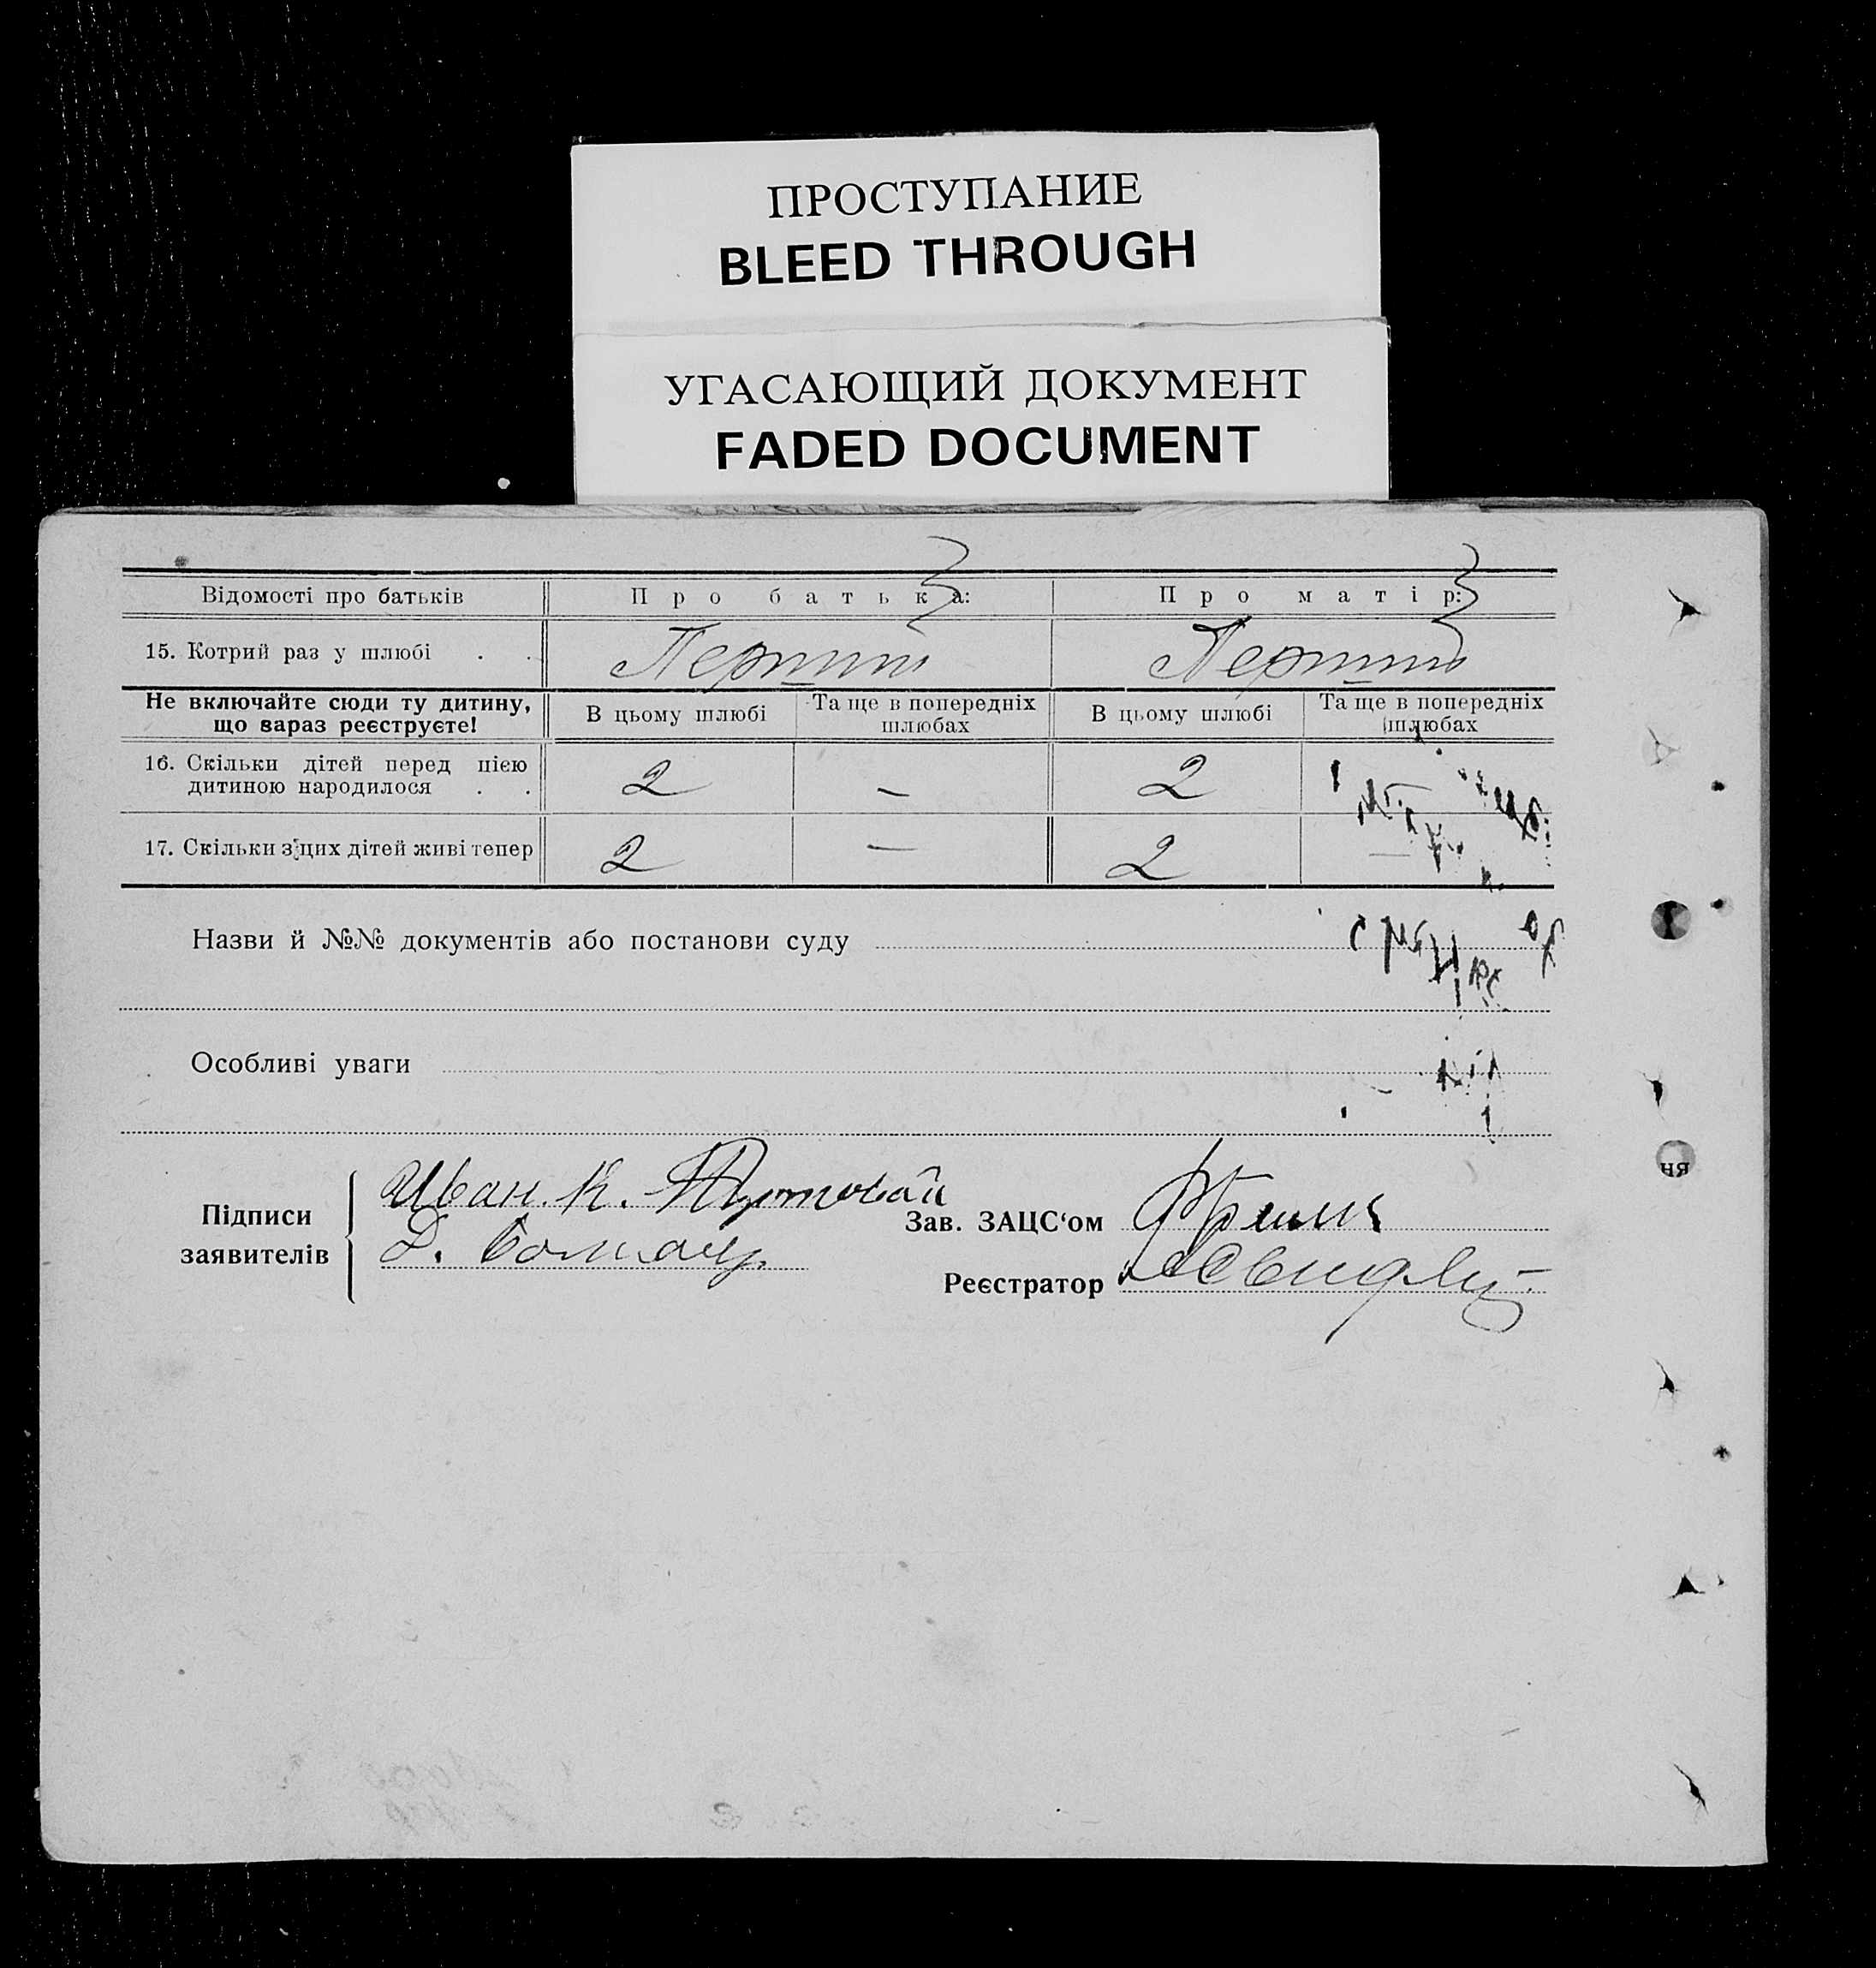 ПРОСТУПАНИЕ
BLEED THROUGH
УГАСАЮЩИЙ ДОКУМЕНТ
FADED DOCUMENT
Відомості про батьків Про батька: Про матір:
15. Котрий раз у шлюбі . . Перший Перший
Не включайте сюди ту дитину, що зараз реєструєте! В цьому шлюбі Та ще в попередніх шлюбах В цьому шлюбі Та ще в попередніх шлюбах
16. Скільки дітей перед цією дитиною народилося . . 2 — 2
17. Скільки з цих дітей живі тепер 2 — 2 —
Назви й №№ документів або постанови суду
Особливі уваги
Підписи заявителів
Иван. К.
Д.
Зав. ЗАЦС‘ом
Реєстратор
ня